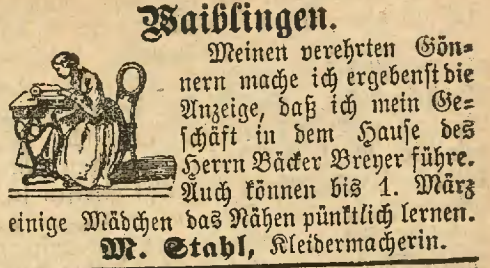 Waiblingen.
Meinen verehrten Gön-
nern mache ich ergebenst die
Anzeige, daß ich mein Ge-
schäft in dem Hause des
Herrn Bäcker Breyer führe.
Auch können bis 1. März
einige Mädchen das Nähen pünktlich lernen.
M. Stahl, Kleidermacherin.